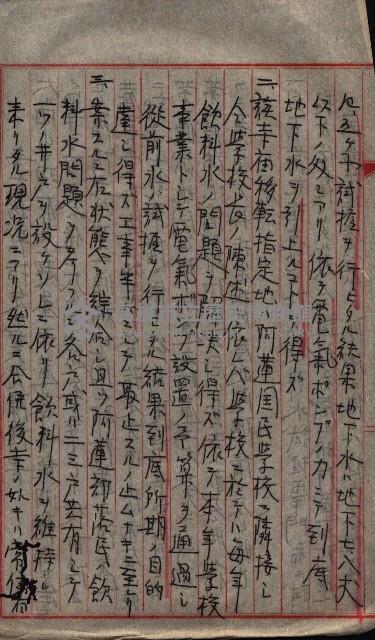 ニ試掘ヲ行ヒタル結果地下水ハ地下七八丈
以下ノ処ニアリ依テ電氣ポンプノ力ニテ到底
地下水ヲ引上ルコトヲ得ズ
二、該寺廟移転指定地ハ阿蓮国民学校ニ隣接シ
仝学校長ノ陳述ニ依レバ学校ニ於テハ毎年
飲料水ノ問題ヲ解決シ得ズ依テ本年学校
事業トシテ電氣ポンプ設置ノ予算ヲ通過シ
従前水ノ試掘ヲ行ヒタル結果到底所期ノ目的
ヲ達シ得ズ工事半ニシテ取止スルノ止ムナキニ至レリ
三、案スルニ右状態ヲ綜合シ且ツ阿蓮部落民ハ飲
料水問題ヲ考ヘ各戸或ハ二三戸共有シテ
一ツノ井戸ヲ設ケ以上ニ依リ飲料水ヲ維持シ
来リタル現況ニアリ然ルニ合併後寺ノ如キハ